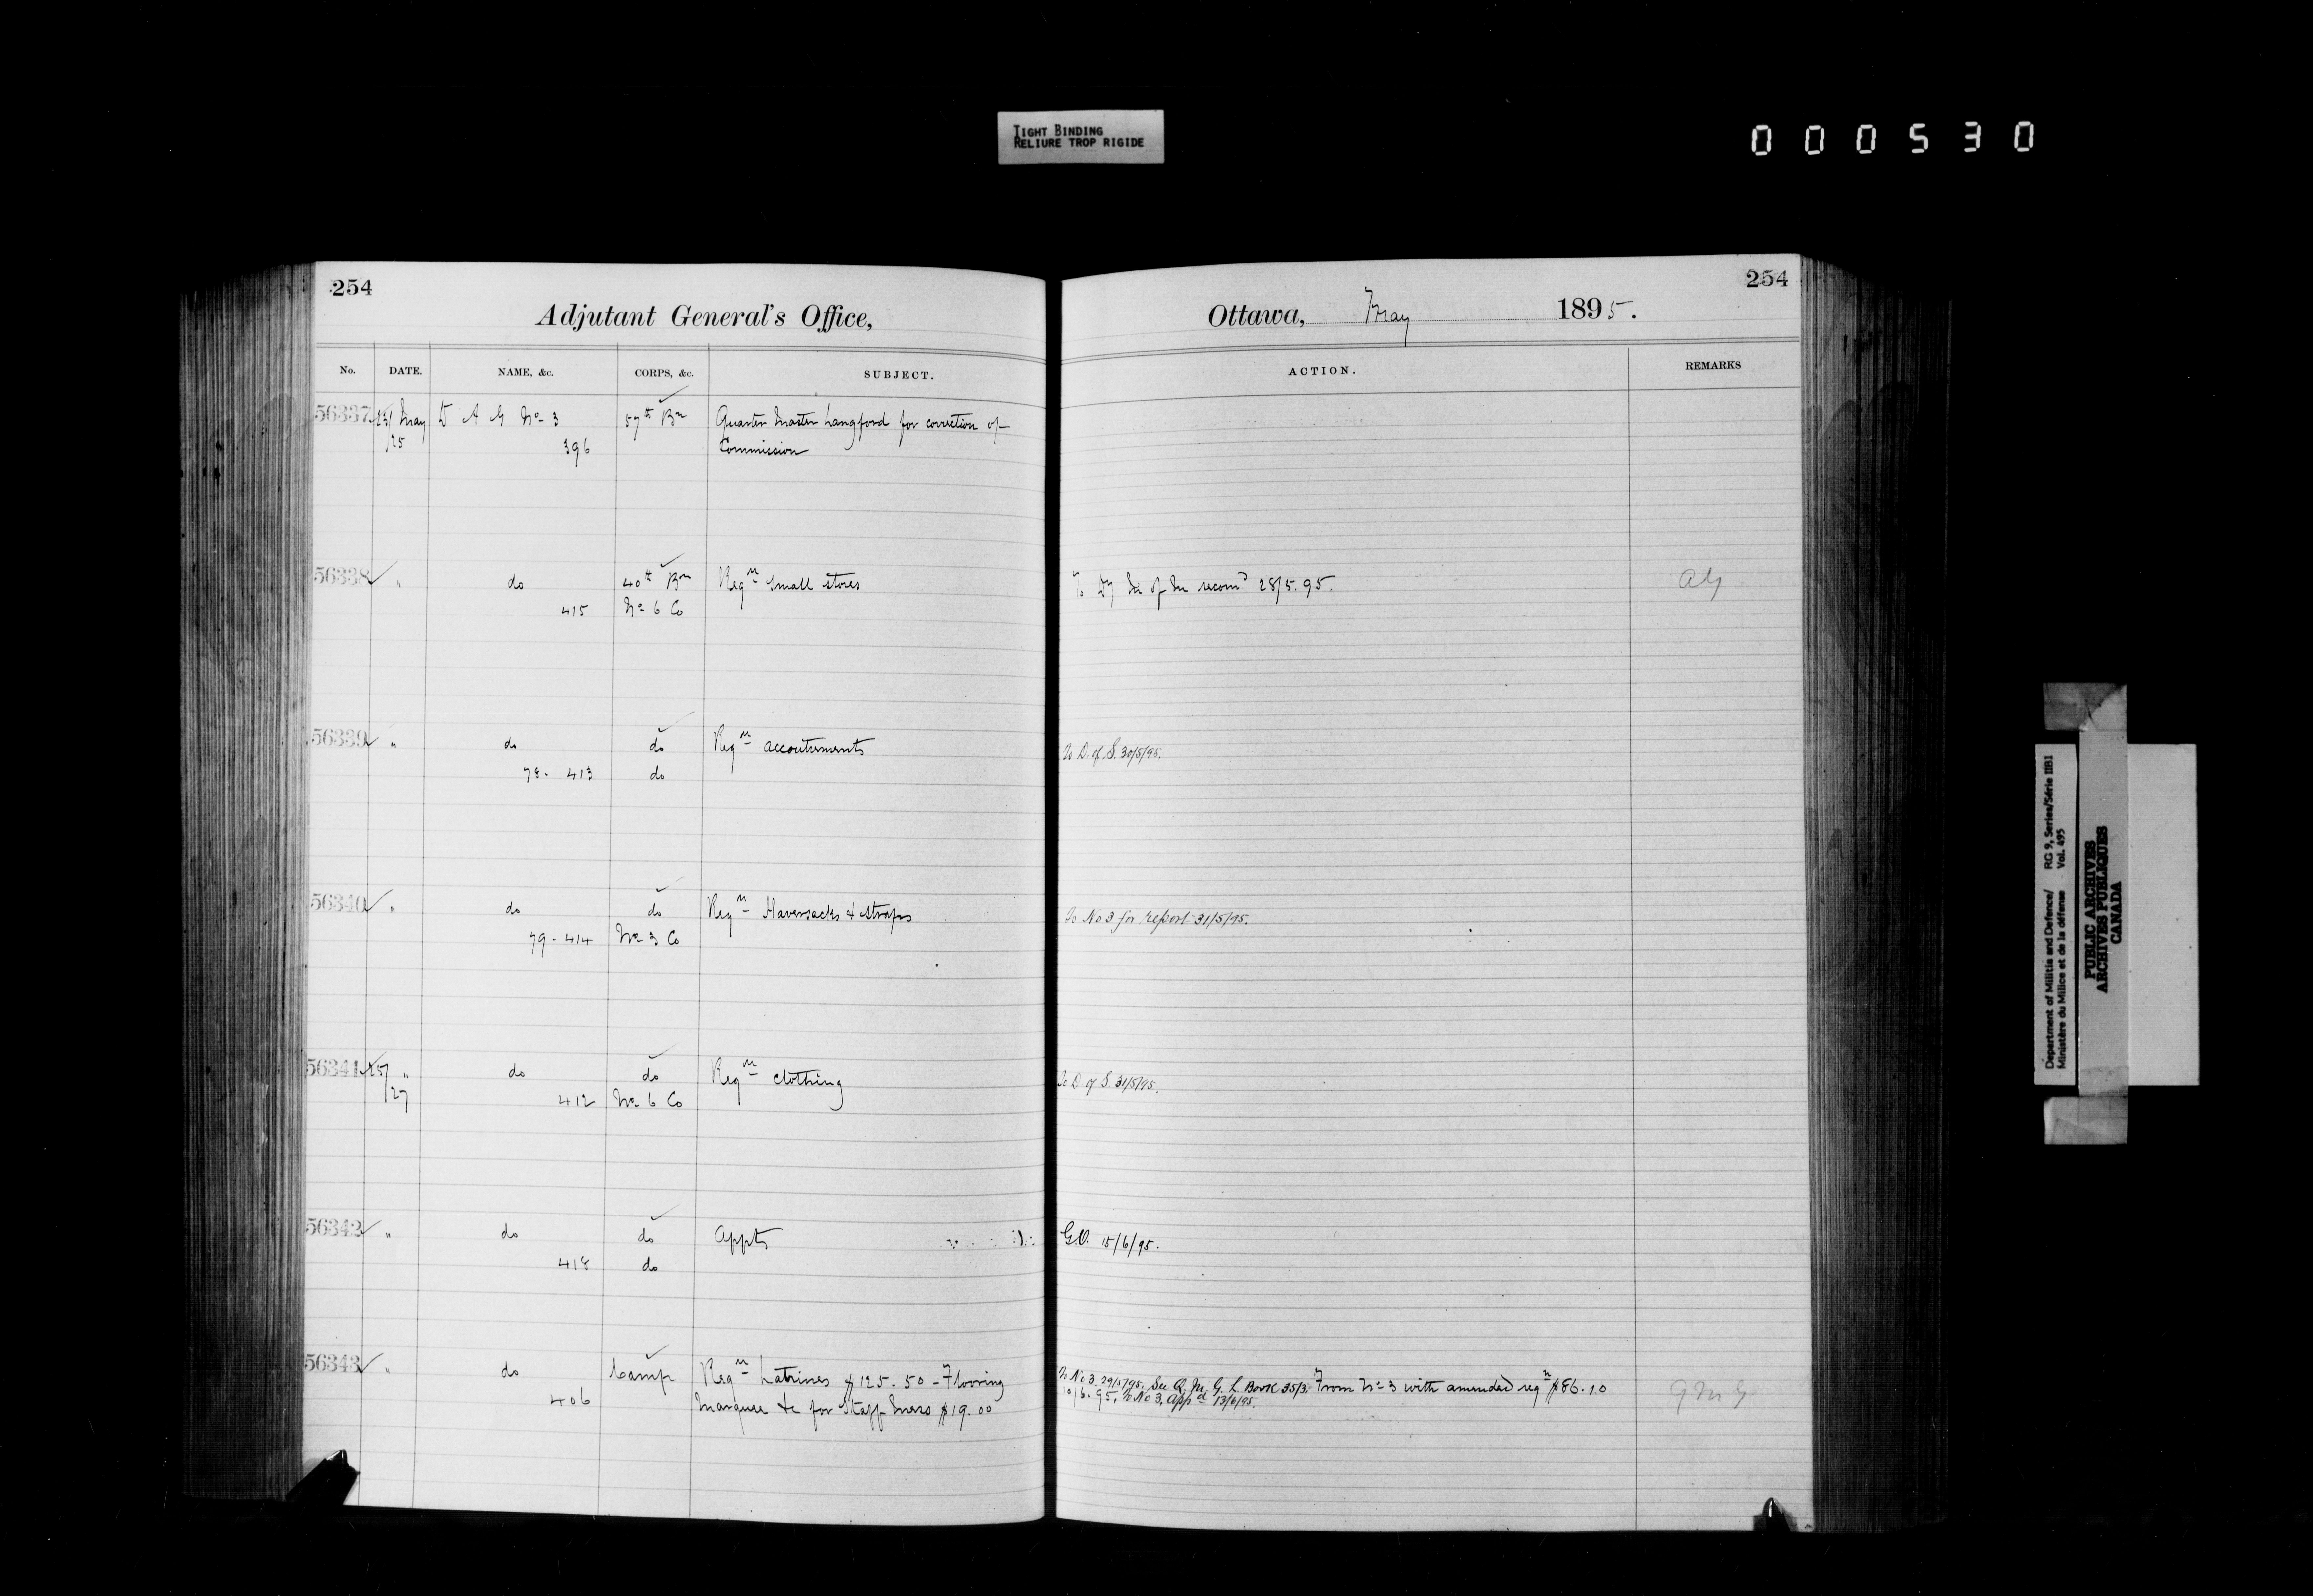 TIGHT BINDING
RELIURE TROP RIGIDE
000530
254
Adjutant General's Office,
No. DATE. NAME, &c. CORPS, &c. SUBJECT.
56337 23/ May D A G No 3 57th Bn Quarter Master Langford for correction of
/25 396 Commission
56338 " do 40th Bn Reqn small stores
415 No 6 Co
56339 " do do Reqn accoutrements
78 - 413 do
56340 " do do Reqn Haversacks & straps
79 - 414 No 3 Co
56341 25/ " do do Reqn clothing
/27 412 No 6 Co
56342 " do do Appts
418 do
56343 " do Camp Reqn Latrines $125.50 - Flooring
406 Marquee &c for Staff Mess $19.00
254
Ottawa, May 1895.
ACTION. REMARKS
To Dy M of M recomd 28/5.95. AG
To D. of S. 30/5/95.
To No 3 for report 31/5/95.
To D. of S. 31/5/95.
G.O. 15/6/95.
To No 3. 29/5/95. See Q. M. G. L. Book 35/3. From No 3 with amended reqn $86.10
10/6.95. To No 3, Appd 13/6/95. QMG
Department of Militia and Defence/ RG 9, Series/Série IIB1
Ministère du Milice et de la défense Vol. 495
PUBLIC ARCHIVES
ARCHIVES PUBLIQUES
CANADA